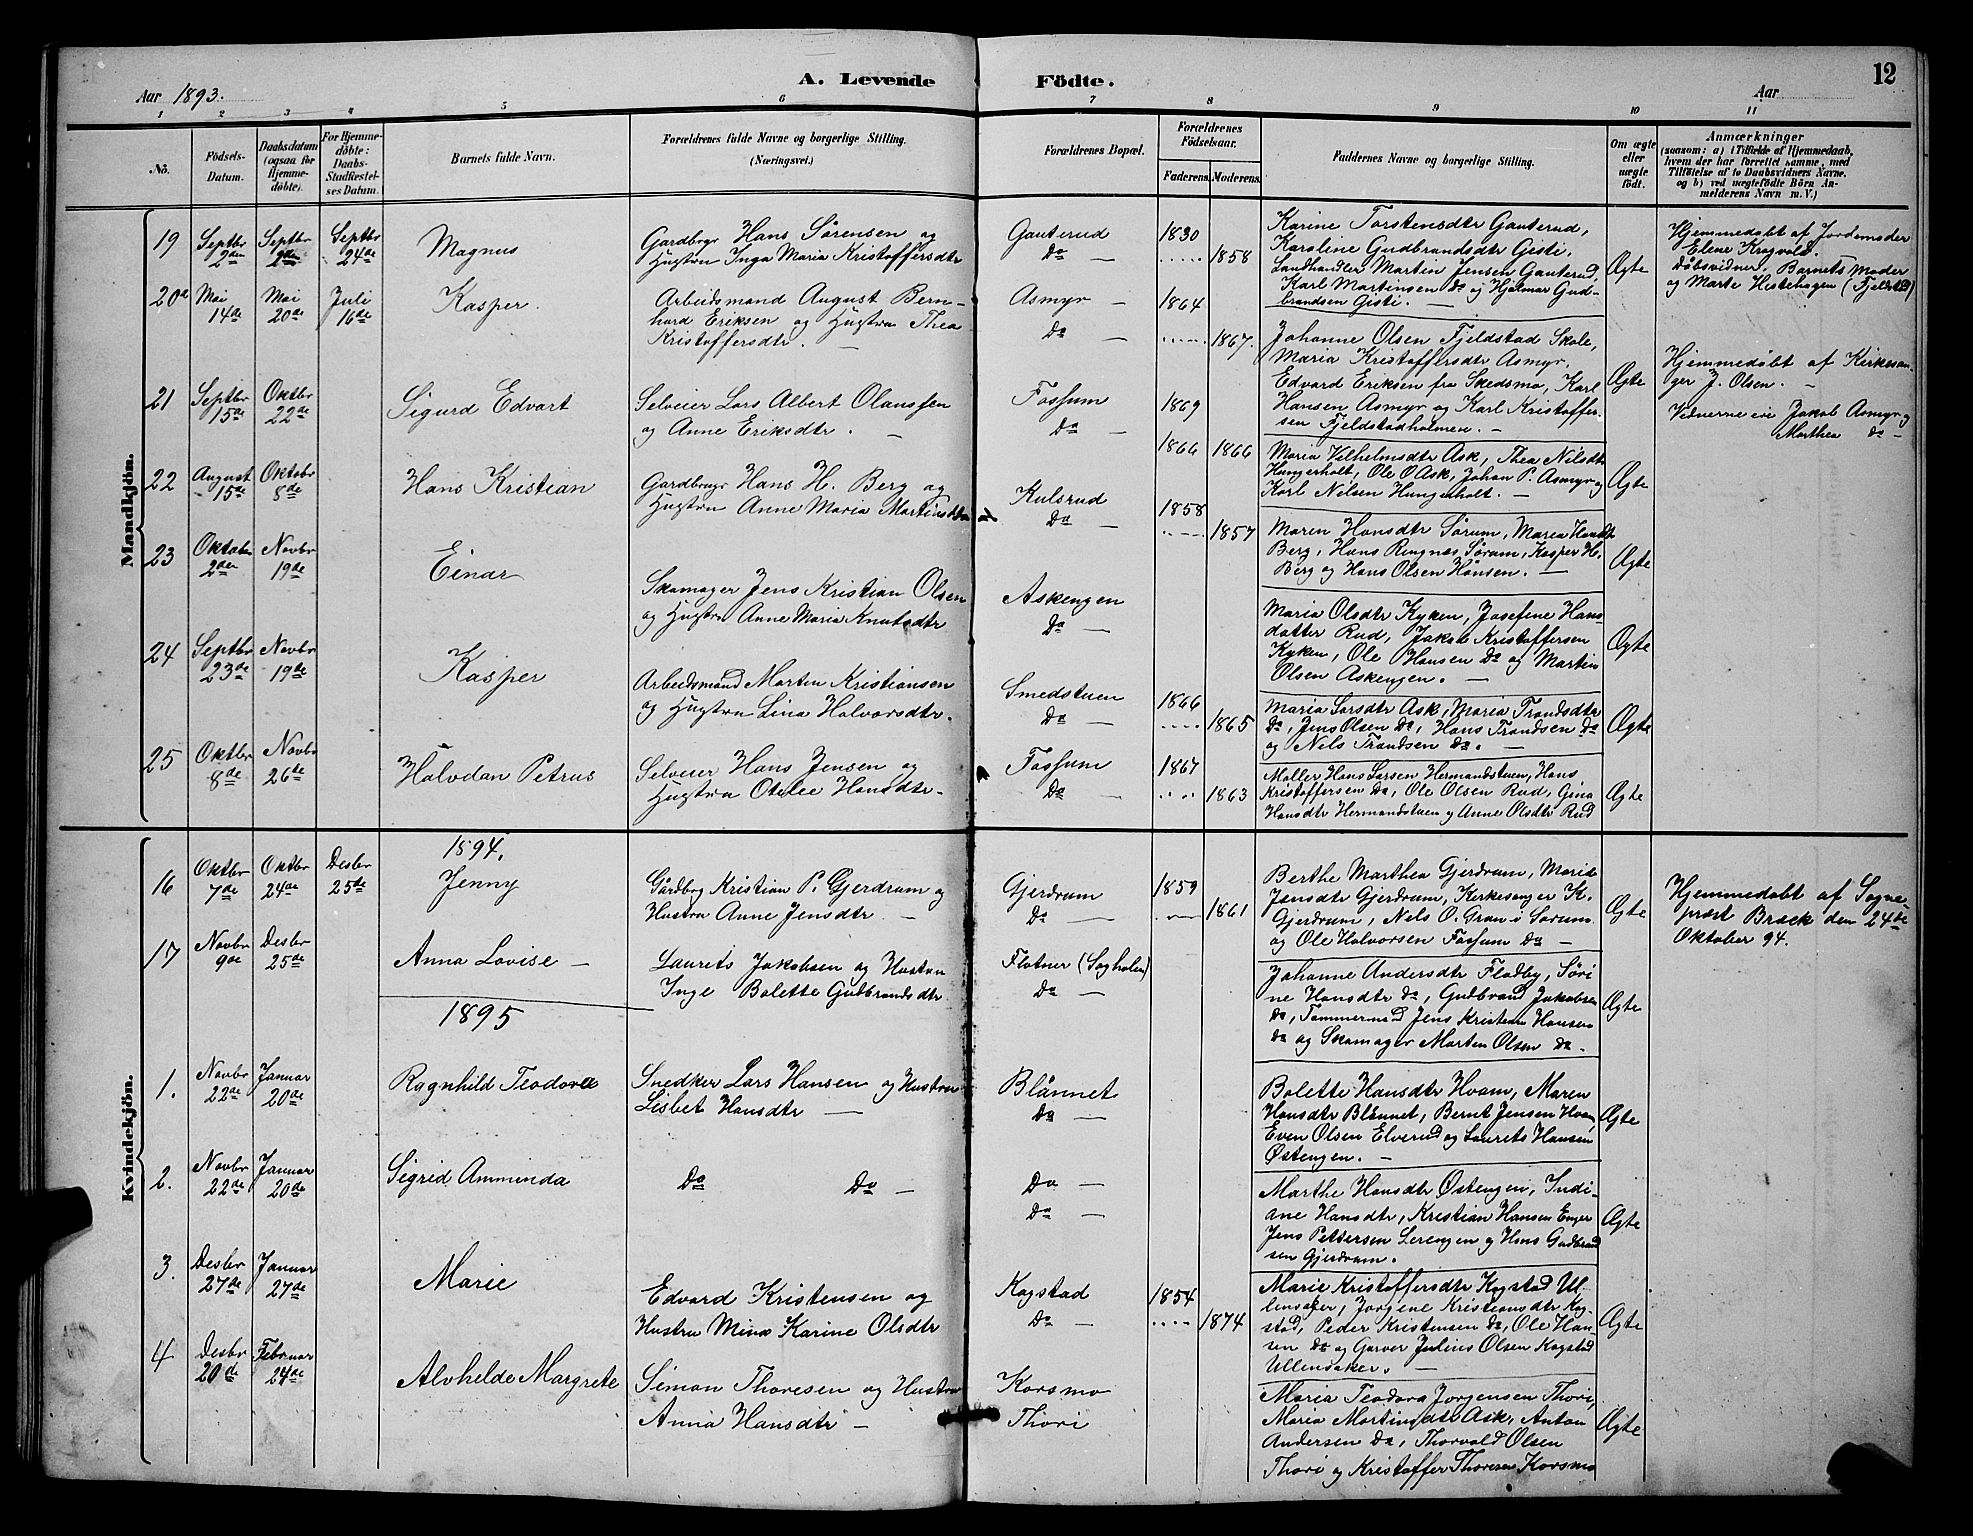 12
A. Levende Födte.
Aar 1893.
Aar
1 2 3 4 5 6 7 8 9 10 11
No.
Födsels-Datum.
Daabsdatum (ogsaa for Hjemme-döbte).
For Hjemme-döbte: Daabs-Stadfæstel-ses Datum.
Barnets fulde Navn.
Forældrenes fulde Navne og borgerlige Stilling.
(Næringsvei.)
Forældrenes Bopæl.
Forældrenes Födselsaar.
Faderens. Moderens.
Faddernes Navne og borgerlige Stilling.
Om ægte eller uægte født.
Anmærkninger
(saasom: a) i Tilfælde af Hjemmedaab,
hvem der har forrettet samme, med
Tilföielse af to Daabsvidners Navne.
og b) ved uægtefödte Börn An-
melderens Navn m. V.)
Mandkjön.
19 Septbr 2den Septbr 2den Septbr 24de
Magnus
Gardbrgr Hans Sørensen og
Hustru Inga Maria Kristoffersdtr
Gauterud
Do —
1830
..... 1858
Karine Torstensdtr Gauterud,
Karoline Gudbrandsdtr Gisti,
Landhandler Martin Jensen Gauterud,
Karl Martinsen Do og Hjalmar Gud-
brandsen Gisti. —
Ægte
Hjemmedøbt af Jordemoder
Elene Kragvold.
Døbsvidner: Barnets Moder
og Marte Hestehagen (Fjelstad)
20a Mai 14de Mai 20de Juli 16de
Kasper.
Arbeidsmand August Bern-
hard Eriksen og Hustru Thea
Kristoffersdtr. —
Asmyr —
Do —
1864
..... 1867.
Johanne Olsen Fjeldstad Skole,
Maria Kristoffersdtr Asmyr,
Edvard Eriksen fra Skedsmo, Karl
Hansen Asmyr og Karl Kristoffer-
sen Fjeldstadholmen. —
Ægte
Hjemmedøbt af Kirkesan-
ger J. Olsen. —
Vidnerne ere Jakob Asmyr og
Marthea do —
21 Septbr 15de Oktbr 22de
Sigurd Edvart
Selveier Lars Albert Olaussen
og Anne Eriksdtr. —
Fossum
Do —
1869
1866 1866
Maria Vilhelmsdtr Ask, Thea Nilsdtr
Hungerholt, Ole O Ask, Johan P. Asmyr og
Karl Nilsen Hungerholt. —
Ægte
22 August 15de Oktobr 8de
Hans Kristian
Gardbrugr Hans H. Berg og
Hustru Anne Maria Martinsdtr
Kulsrud
Do —
1858
..... 1857
Maren Hansdtr Sørum, Maria Hansdtr
Berg, Hans Ringnæs Sørum, Kasper H.
Berg og Hans Olsen Hånsen. —
Ægte
23 Oktober 2den Novbr 19de
Einar
Skomager Jens Kristian Olsen
og Hustru Anne Maria Knutsdtr
Askengen
Do —
Maria Olsdtr Kyken, Josefine Hans-
datter Rud, Jakob Kristoffersen
Kyken, Ole Hansen Do og Martin
Olsen Askengen. —
Ægte
24 Septbr 23de Novbr 19de
Kasper
Arbeidsmand Morten Kristiansen
og Hustru Lina Halvorsdtr.
Smedstuen
Do —
1866
.... 1865
Maria Larsdtr Ask, Maria Trandsdtr
Do, Jens Olsen Do, Hans Trandsen Do
og Nels Trandsen Do. —
Ægte
25 Oktbr 8de Novbr 26de
Halvdan Petrus
Selveier Hans Jensen og
Hustru Otilie Hansdtr.
Fossum
Do —
1867
.... 1863
Møller Hans Larsen Hermandstuen, Hans
Kristoffersen Do, Ole Olsen Rud, Gina
Hansdtr Hermandstuen og Anne Olsdtr Rud
Ægte
Kvindekjön.
1894.
16 Oktbr 7de Oktbr 24de Desbr 25de
Jenny
Gårdbrg Kristian P. Gjerdrum og
Hustru Anne Jensdtr. —
Gjerdrum
Do —
1859
.... 1861
Berthe Marthea Gjerdrum, Marie
Jensdtr Gjerdrum, Kirkesanger K.
Gjerdrum, Nels O. Gran i Sørum
og Ole Halvorsen Fossum Do —
Ægte
Hjemmedøbt af Sogne-
prest Bræck den 24de
Oktober 94.
17 Novbr 9de Desbr 25de
Anna Lovise —
Laurits Jakobsen og Hustru
Inge Bolette Gudbrandsdtr
Flatner (Sagholen)
Do —
Johanne Andersdtr Fladby, Søri-
ne Hansdtr do, Gudbrand Jakobsen
Do, Tømmermd Jens Kristian Hansen
Do og Skomager Morten Olsen Do.
Ægte
1895
1. Novbr 22de Januar 20de
Ragnhild Teodora
Snedker Lars Hansen og Hustru
Lisbet Hansdtr —
Blånnet
Do —
Bolette Hansdtr Hvam, Maren
Hansdtr Blånnet, Bernt Jensen Hvam,
Even Olsen Elverud og Laurits Hansen
Østengen. —
Ægte
2. Novbr 22de Januar 20de
Sigrid Amminda
Do Do —
Do —
Do —
Marthe Hansdtr Østengen, Indi-
ane Hansdtr, Kristian Hansen Enger
Jens Pettersen Lerengen og Hans Gudbrand
sen Gjerdrum.
Ægte
3. Desbr 27de Januar 27de
Marie
Edvard Kristensen og
Hustru Mina Karine Olsdtr
Kogstad
Do —
1854
.... 1874
Marie Kristoffersdtr Kogstad Ul-
lensaker, Jorgine Kristiansdtr Kog-
stad, Peder Kristensen Do, Ole Han-
sen Do og Garver Julius Olsen Kogstad
Ullensaker. —
Ægte
4 Desbr 20de Februar 24de
Alvhelde Margrete
Simon Thoresen og Hustru
Anna Hansdtr —
Korsmo
Thori
Maria Teodora Jorgensen Thori,
Maria Martinsdtr Ask, Anton
Andersen Do, Thorvald Olsen
Thori og Kristoffer Thoresen Korsmo
Ægte